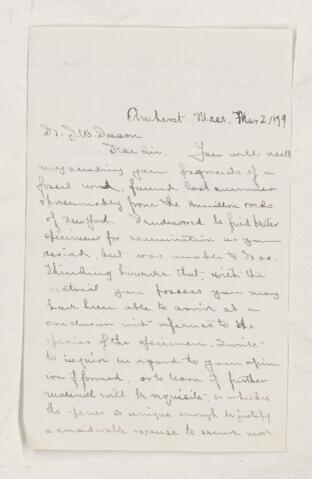 Amherst, Mass, Mar 2, 1899
Dr. J. W. Dawson
Dear Sir. You will recall
my sending you fragments of a
fossil wood, found last summer
presumably from the Hamilton rocks
of . I endeavored to find better
specimens for examination as you
desired, but was unable to do so.
Thinking however that with the
material you possess you may
have been able to arrive at a
conclusion with reference to the
species of the specimen, I write
to inquire in regard to your opin
ion if formed, or to learn if further
material will be requisite, or whether
the species is unique enough to justify
a considerable expense to secure more